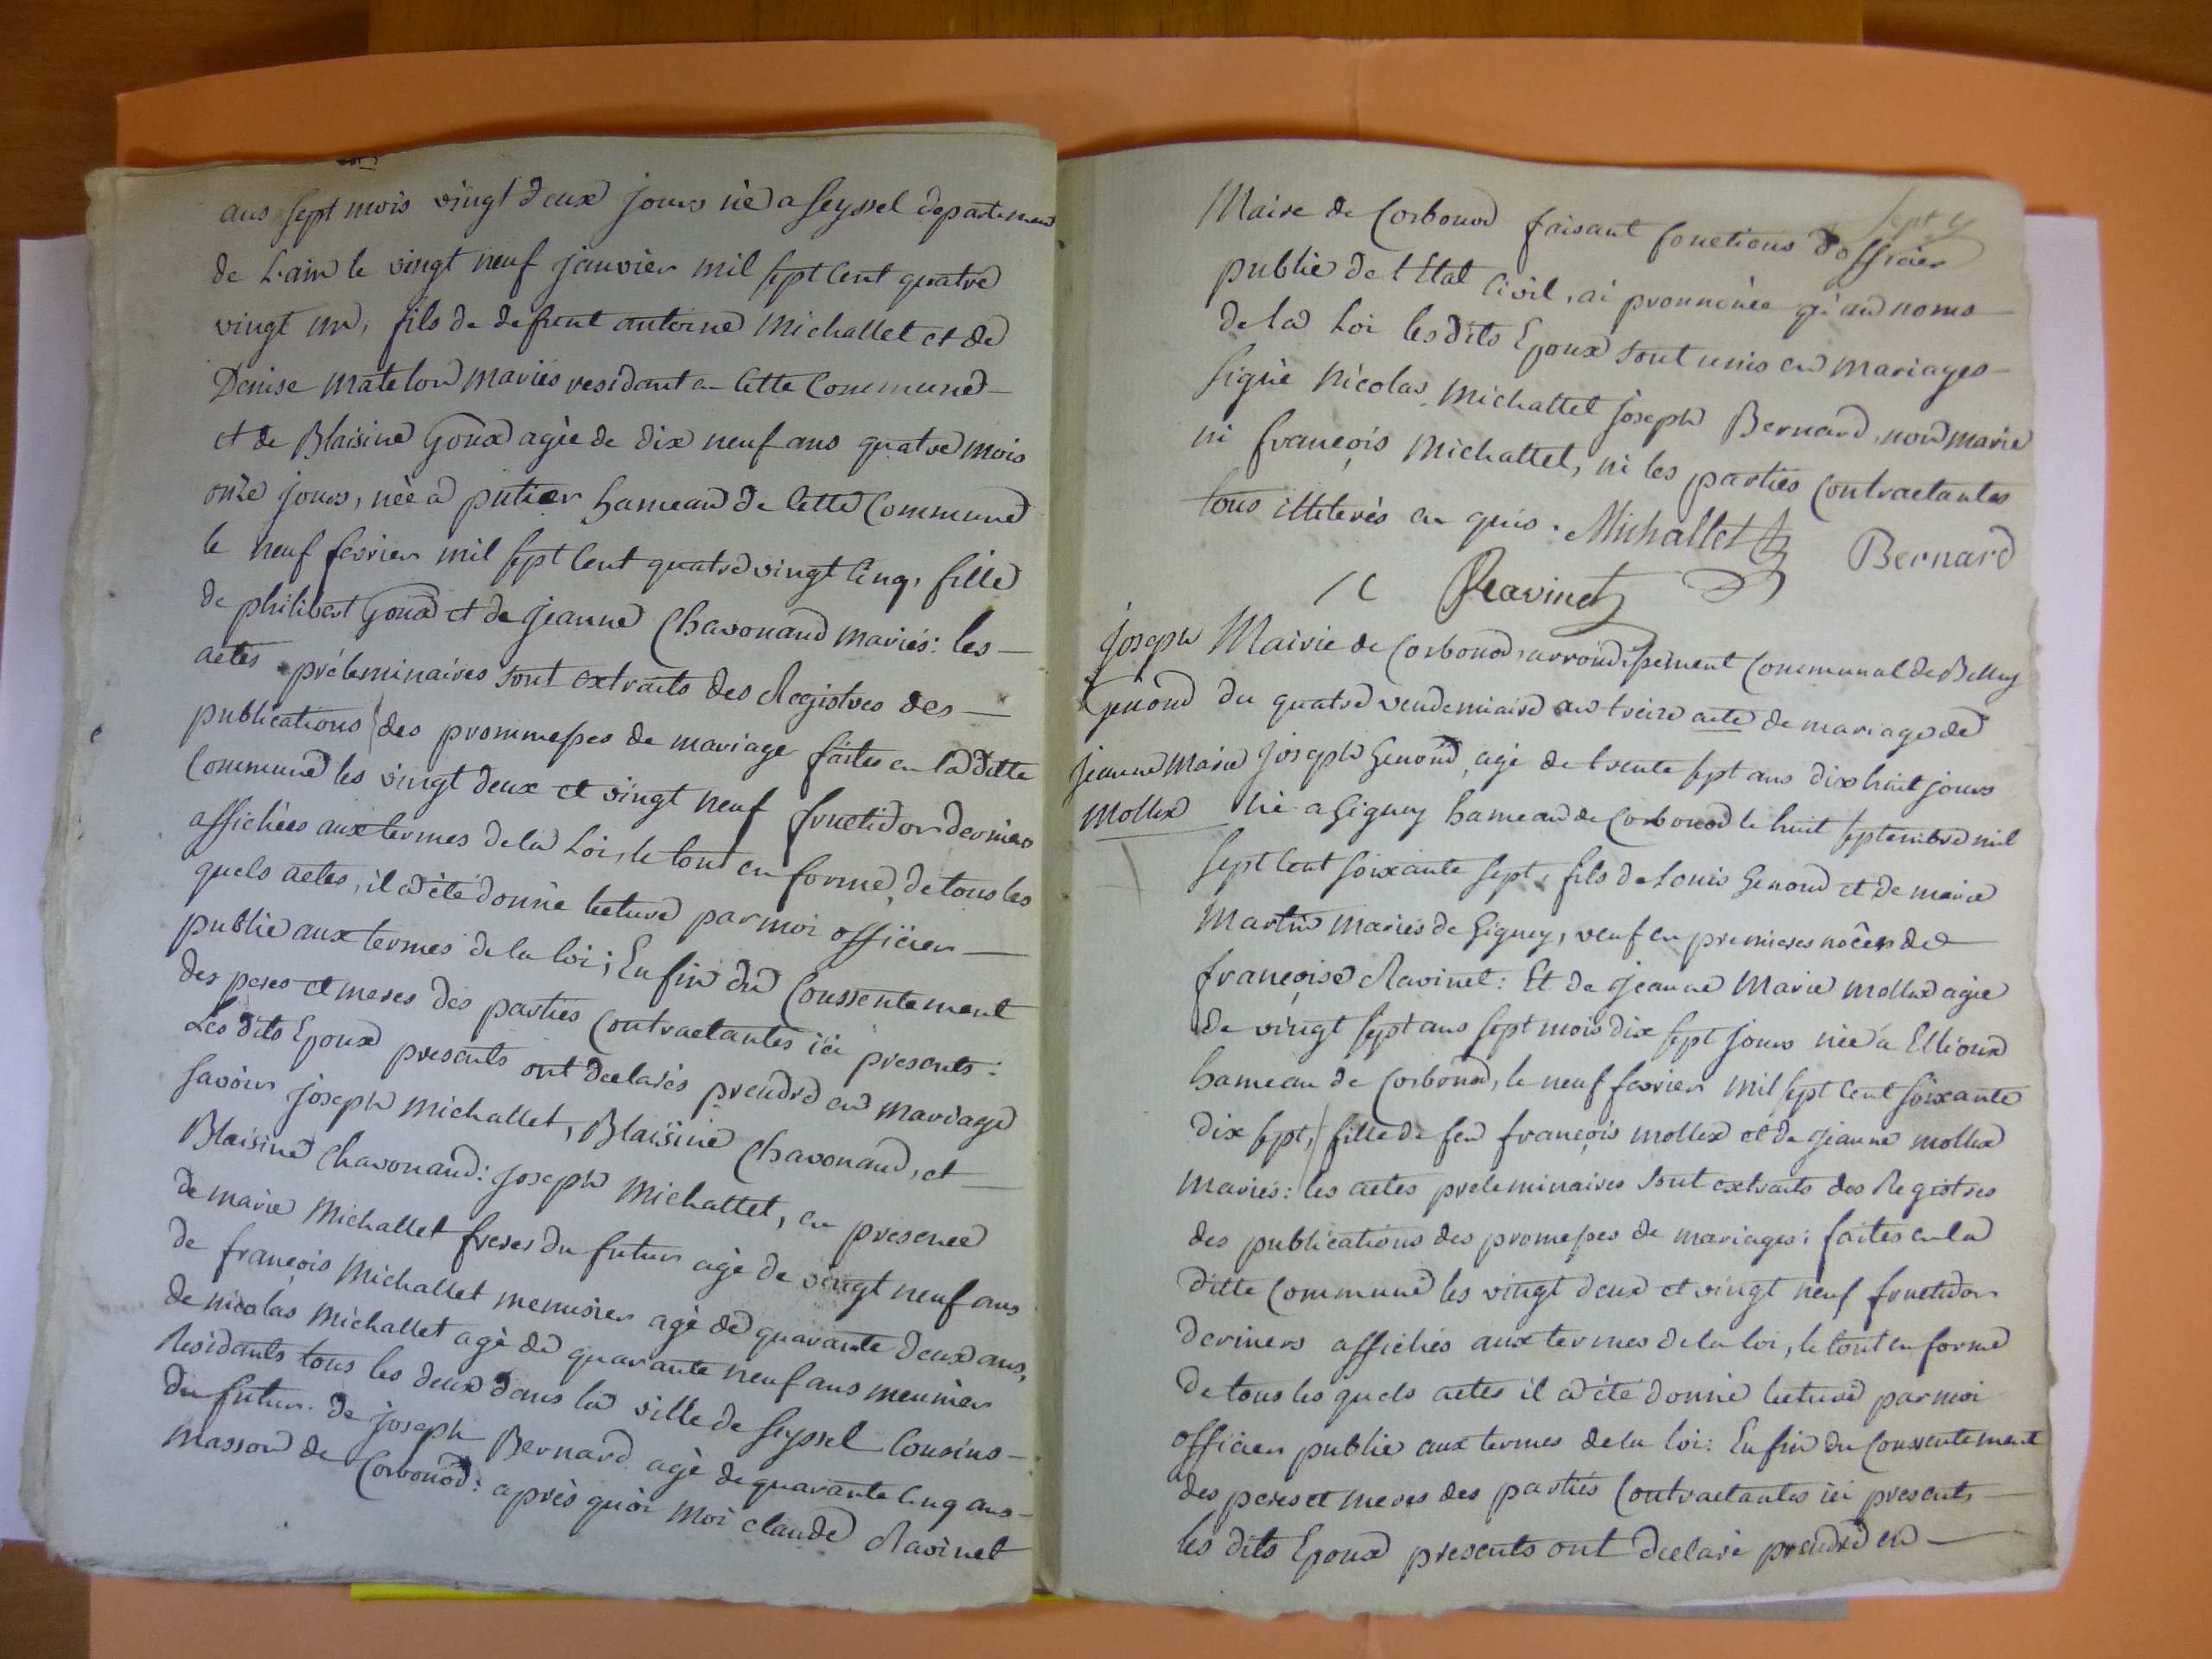 ans sept mois vingt deux jours né a Seyssel departement
de L'ain le vingt neuf janvier mil sept cent quatre
vingt un, fils de defrunt antoine Michallet et de
Denise matelon mariés residant en cette Commune
et de Blaisine Goux agée de dix neuf ans quatre mois
onze jours, née a putier hameau de cette Commune
le neuf fevrier mil sept cent quatre vingt cinq, fille
de philibert Goux et de jeanne Chavonand mariés: les
actes préléminaires sont extraits des Registres des
publications des prommesses de mariage faites en la ditte
Commune les vingt deux et vingt neuf fructidor dernier
affichées aux termes de la Loi, le tout en forme, de tous les
quels actes, il a été donné lecture par moi officier
public aux termes de la loi; Enfin du Conssentement
des peres et meres des parties Contractantes ici presents:
Les dits Epoux presents ont declarés prendre en mariage
savoir joseph michallet, Blaisine Chavonand, et
Blaisine Chavonand: joseph Michallet, en presence
de marie Michallet freres du futur agé de vingt neuf ans
de françois Michallet menusier agé de quarante deux ans,
de nicolas Michallet agé de quarante neuf ans meunier
Residants tous les deux dans la ville de Seyssel Cousins
du futur. de joseph Bernard agé de quarante cinq ans
masson de Corbonod: après quoi moi claude Ravinet
Sept
Maire de Corbonod faisant fonctions d'officier
public de l'Etat Civil, ai pronnoncée qu'au noms
de la Loi les dits Epoux sont unis en mariages
signé Nicolas Michallet joseph Bernard, non marie
ni françois Michallet, ni les parties Contractantes
tous illiterés en quis. Michallet Bernard
Ravinet
joseph
Genond
jeanne marie
Mollex
Mairie de Corbonod, arrondissement Communal de Belley
du quatre vendemiaire an treize acte de mariage de
joseph Genond, agé de trente sept ans dix huit jours
né a Gigney hameau de Corbonod le huit septembre mil
sept cent soixante sept, fils de Louis Genond et de marie
Martin mariés de Gigney, veuf en premieres nôces de
françoise Ravinet: Et de jeanne Marie mollex agée
de vingt sept ans sept mois dix sept jours née a Ellioux
hameau de Corbonod, le neuf fevrier mil sept cent soixante
dix sept, fille de feu françois mollex et de jeanne mollex
mariés: les actes preleminaires sont extraits des Registres
des publications des promesses de mariages: faites en la
ditte Commune les vingt deux et vingt neuf fructidor
derniers affichés aux termes de la loi, le tout en forme
de tous les quels actes il a été donné lecture par moi
officier public aux termes de la loi: Enfin du Conssentement
des peres et meres des parties Contractantes ici presents
les dits Epoux presents ont declaré prendre en